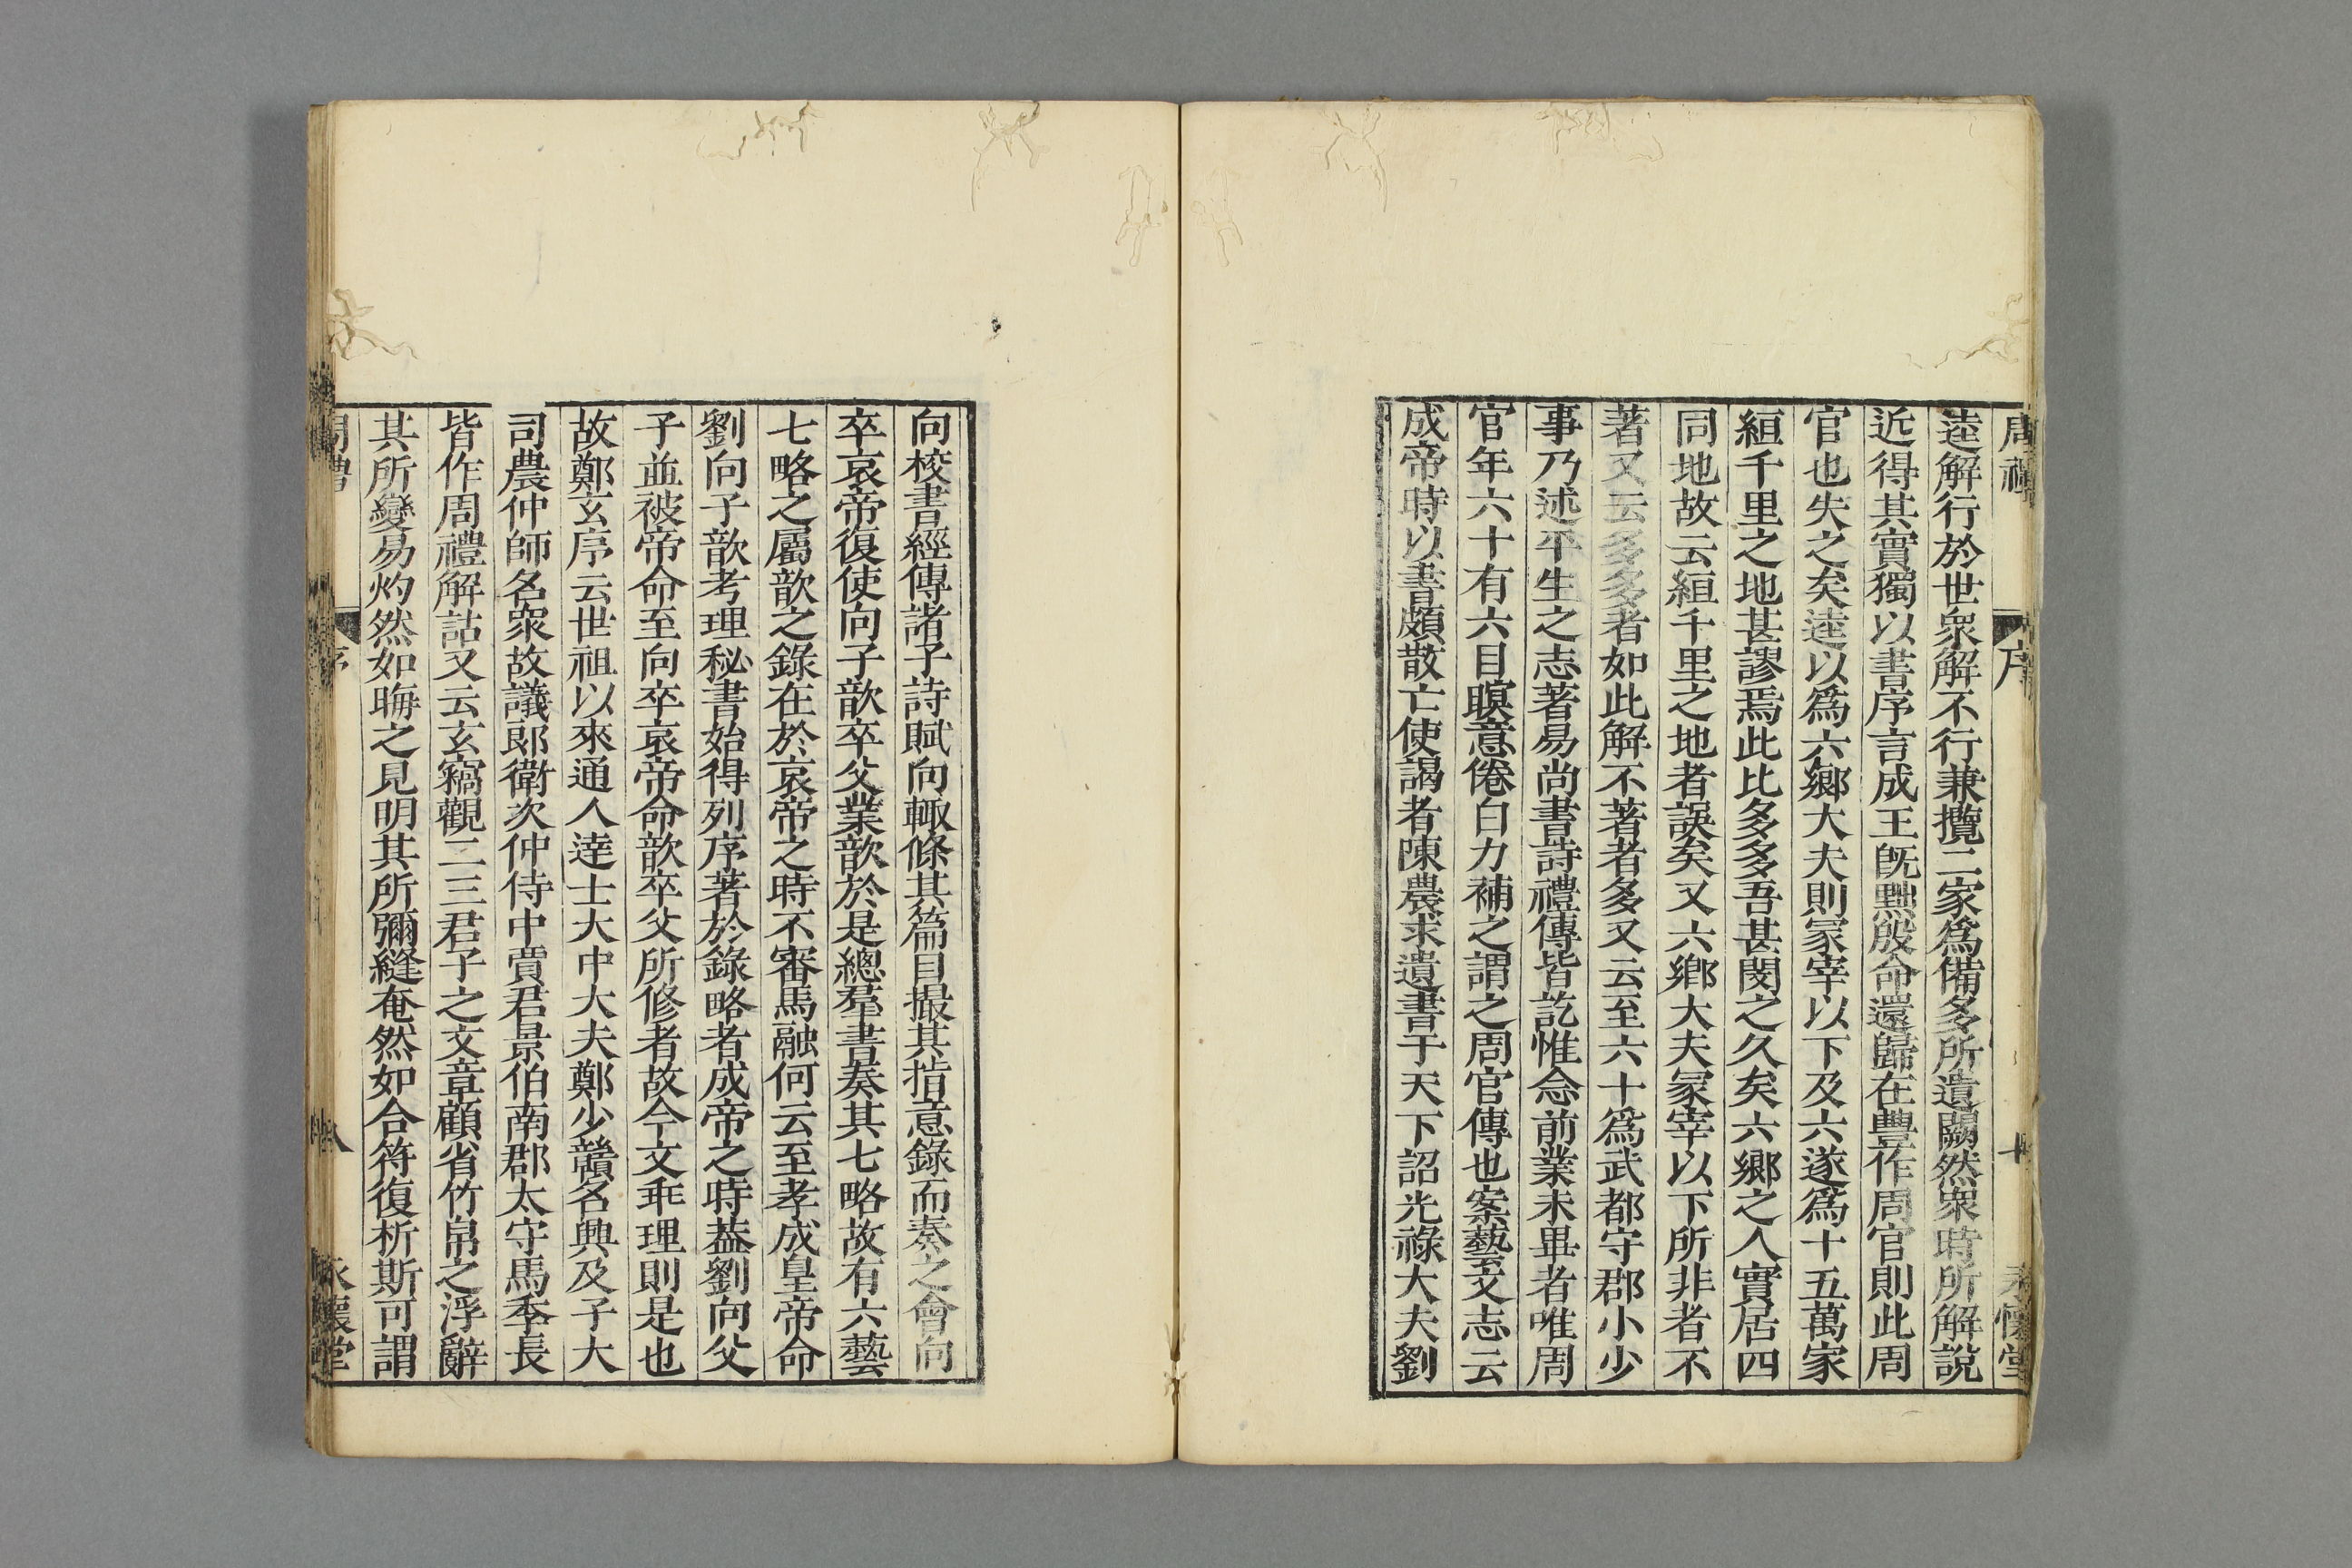 周禮 序 七 永懷堂
逵解行於世衆解不行兼攬二家爲備多所遺闕然衆時所解説
近得其實獨以書序言成王旣黜殷命還歸在豐作周官則此周
官也失之矣逵以爲六鄉大夫則冢宰以下及六遂爲十五萬家
絙千里之地甚謬焉此比多多吾甚閔之久矣六鄉之人實居四
同地故云絙千里之地者誤矣又六鄉大夫冢宰以下所非者不
著又云多多者如此解不著者多又云至六十爲武都守郡小少
事乃述平生之志著易尚書詩禮傳皆訖惟念前業未畢者唯周
官年六十有六目瞑意倦自力補之謂之周官傳也案藝文志云
成帝時以書頗散亡使謁者陳農求遺書于天下詔光祿大夫劉
向校書經傳諸子詩賦向輙條其篇目撮其指意錄而奏之會向
卒哀帝復使向子歆卒父業歆於是總羣書奏其七略故有六藝
七略之屬歆之錄在於哀帝之時不審馬融何云至孝成皇帝命
劉向子歆考理秘書始得列序著於錄略者成帝之時蓋劉向父
子並被帝命至向卒哀帝命歆卒父所修者故今文乖理則是也
故鄭玄序云世祖以來通人達士大中大夫鄭少贛名興及子大
司農仲師名衆故議郎衛次仲侍中賈君景伯南郡太守馬季長
皆作周禮解詁又云玄竊觀二三君子之文章顧省竹帛之浮辭
其所變易灼然如晦之見明其所彌縫奄然如合符復析斯可謂
周禮 序 八 永懷堂